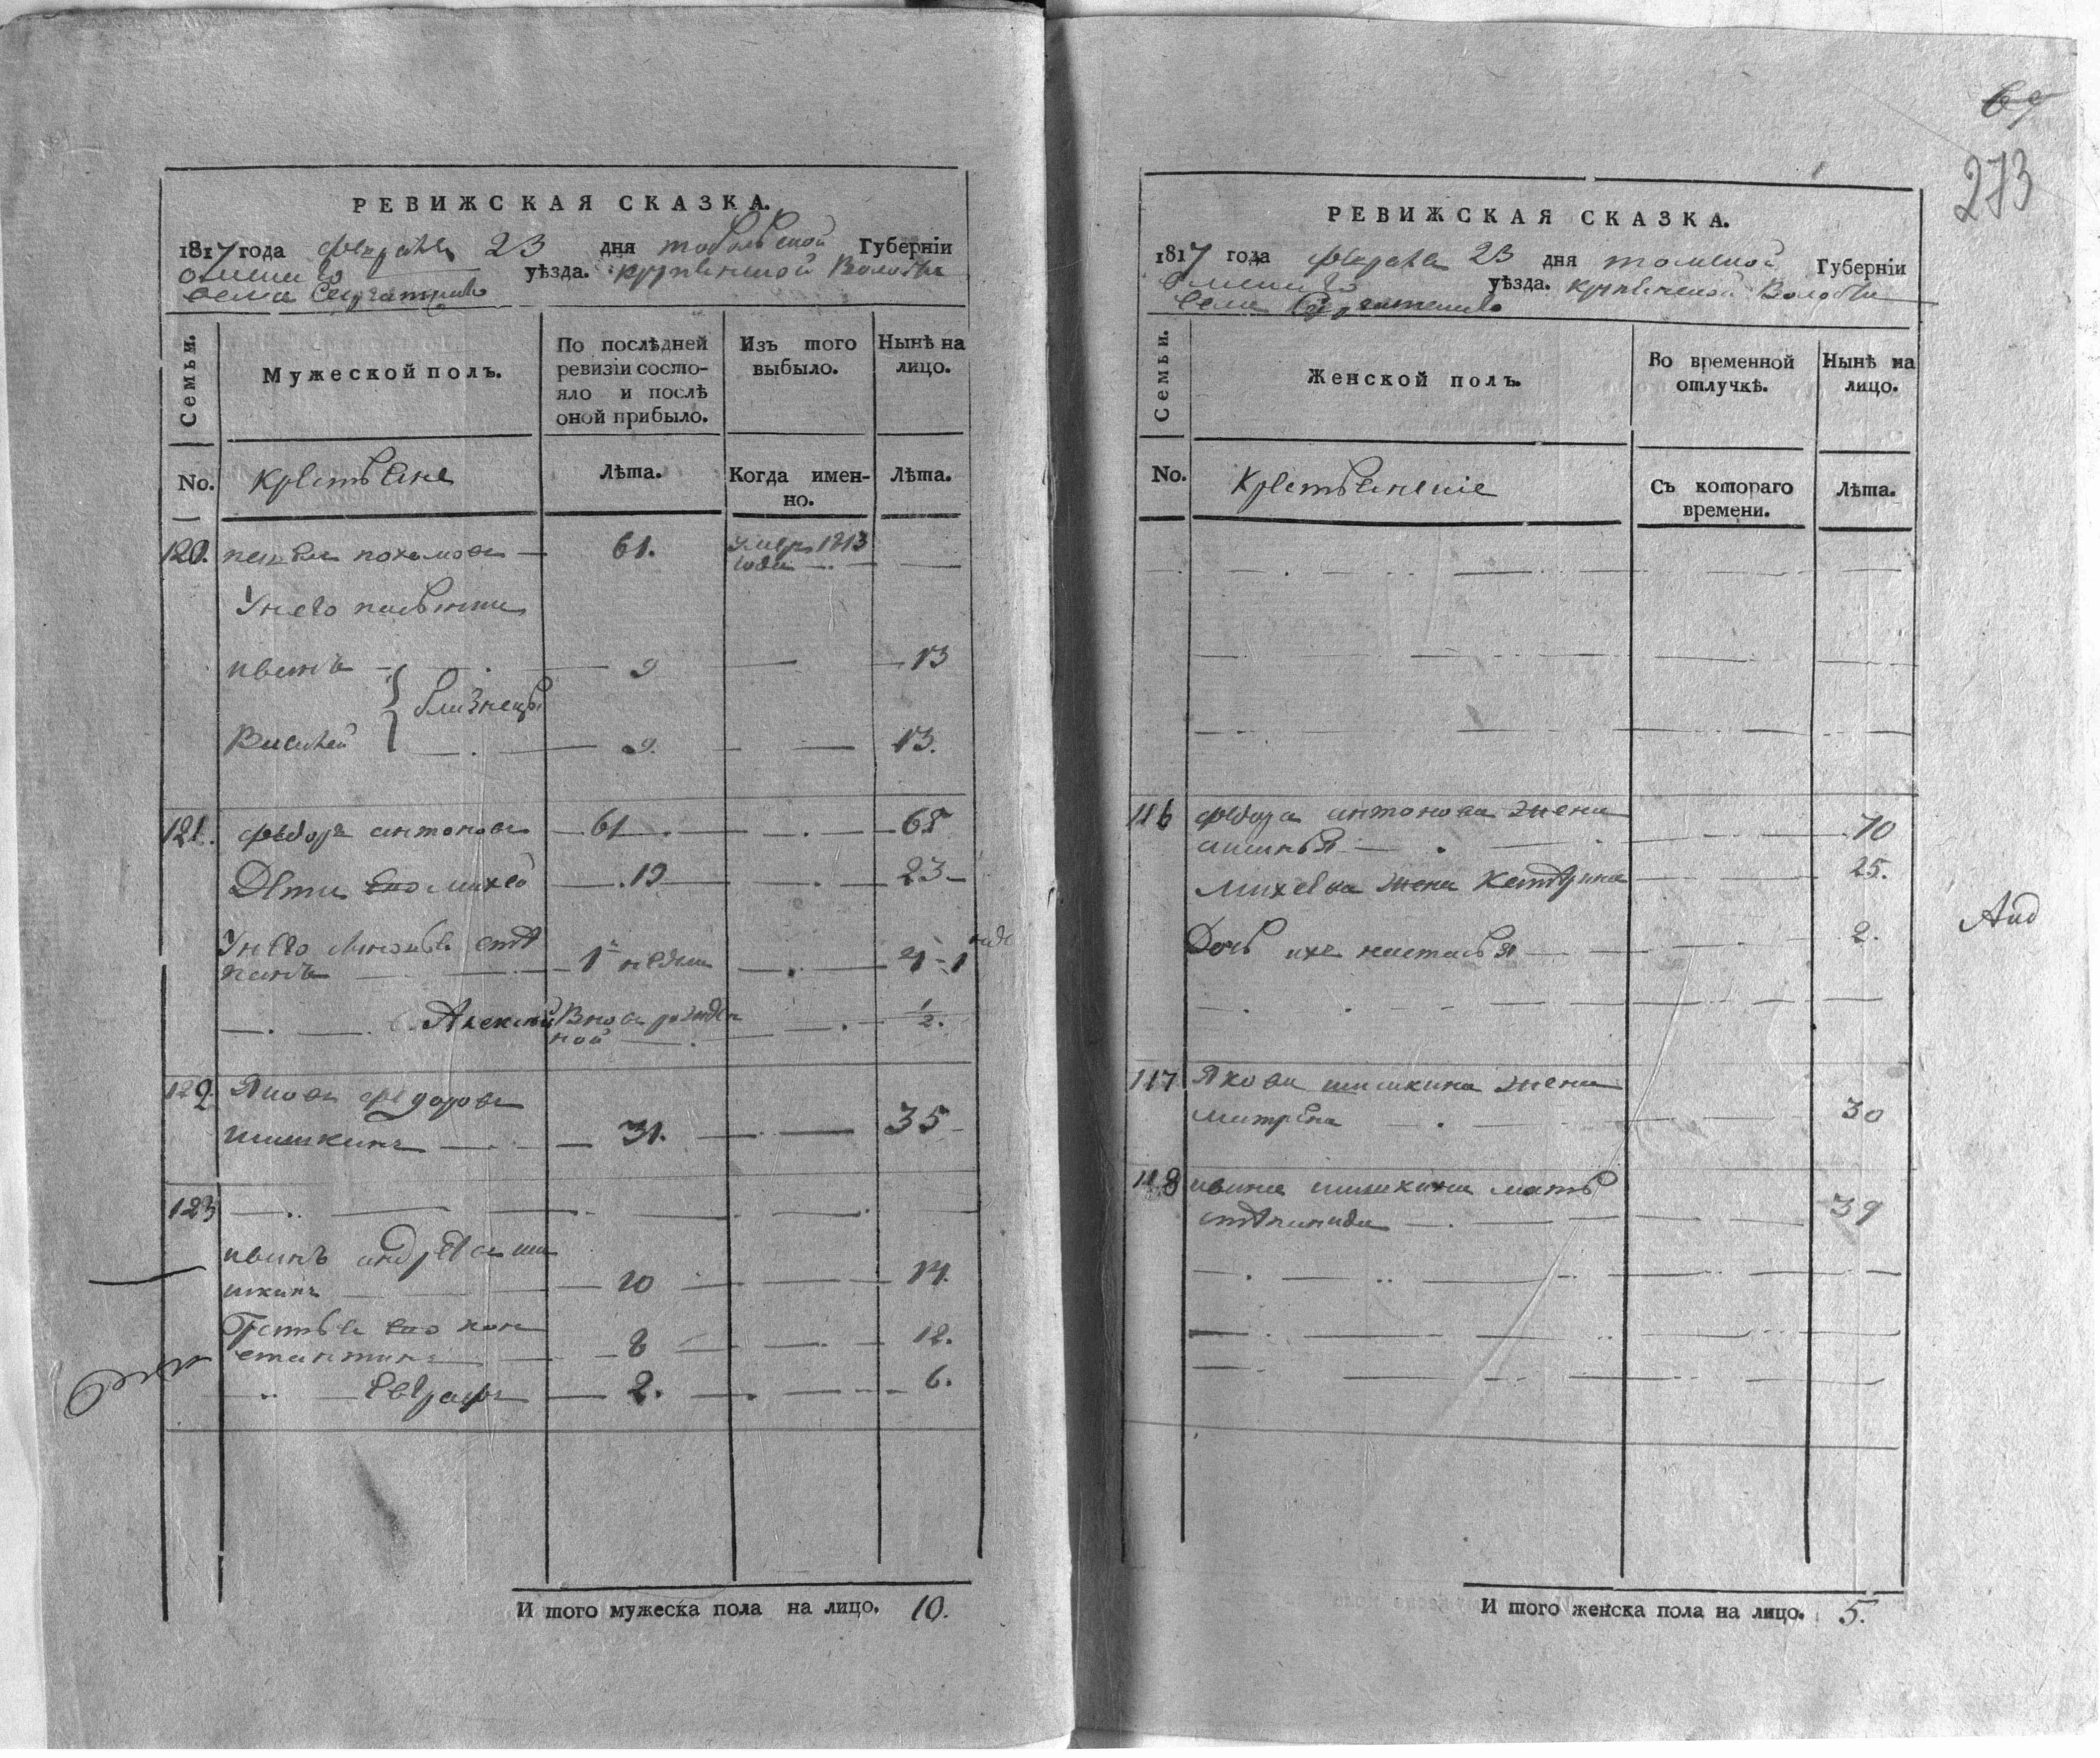 РЕВИЖСКАЯ СКАЗКА.
1817 года февраля 23 дня тобольской Губерніи
омскаго уѣзда. крутинской Волости
села
Семьи.
Мужеской полъ.
По послѣдней ревизіи состо-
яло и послѣ
оной прибыло.
Изъ того
выбыло.
Нынѣ на
лицо.
No.
крестьяне
Лѣта.
Когда имен-
но.
Лѣта.
120. пахомовъ — 61. умеръ 1813
года
У него
иванъ — 9 — 13
близнецы
Василей — 9. — 13.
121. федоръ антоновъ — 61 — 65
Дети его михей — 19 — 23
У него сте
панъ — 1 недели — 4
Алексей Вновь рожден
ной — 1/2.
122. Яковъ федоровъ
шишкинъ — 31. — 35
123
иванъ андреевъ ши
шкинъ — 10 — 14.
Братья его кон
стантинъ — 8 — 12.
Евграфъ — 2. — 6.
И того мужеска пола на лицо. 10.
69
273
РЕВИЖСКАЯ СКАЗКА.
1817 года февраля 23 дня томской Губерніи
омскаго уѣзда. крутинской Волости
села
Семьи.
Женской полъ.
Во временной
отлучкѣ.
Нынѣ на
лицо.
No.
Крестьянскіе
Съ котораго
времени.
Лѣта.
116 федора антонова жена
— 70
михея жена Катерина — 25.
Дочь ихъ настасья — 2.
117 Якова шишкина жена
матрена — 30
118 ивана шишкина мать
степанида — 39
И того женска пола на лицо. 5.